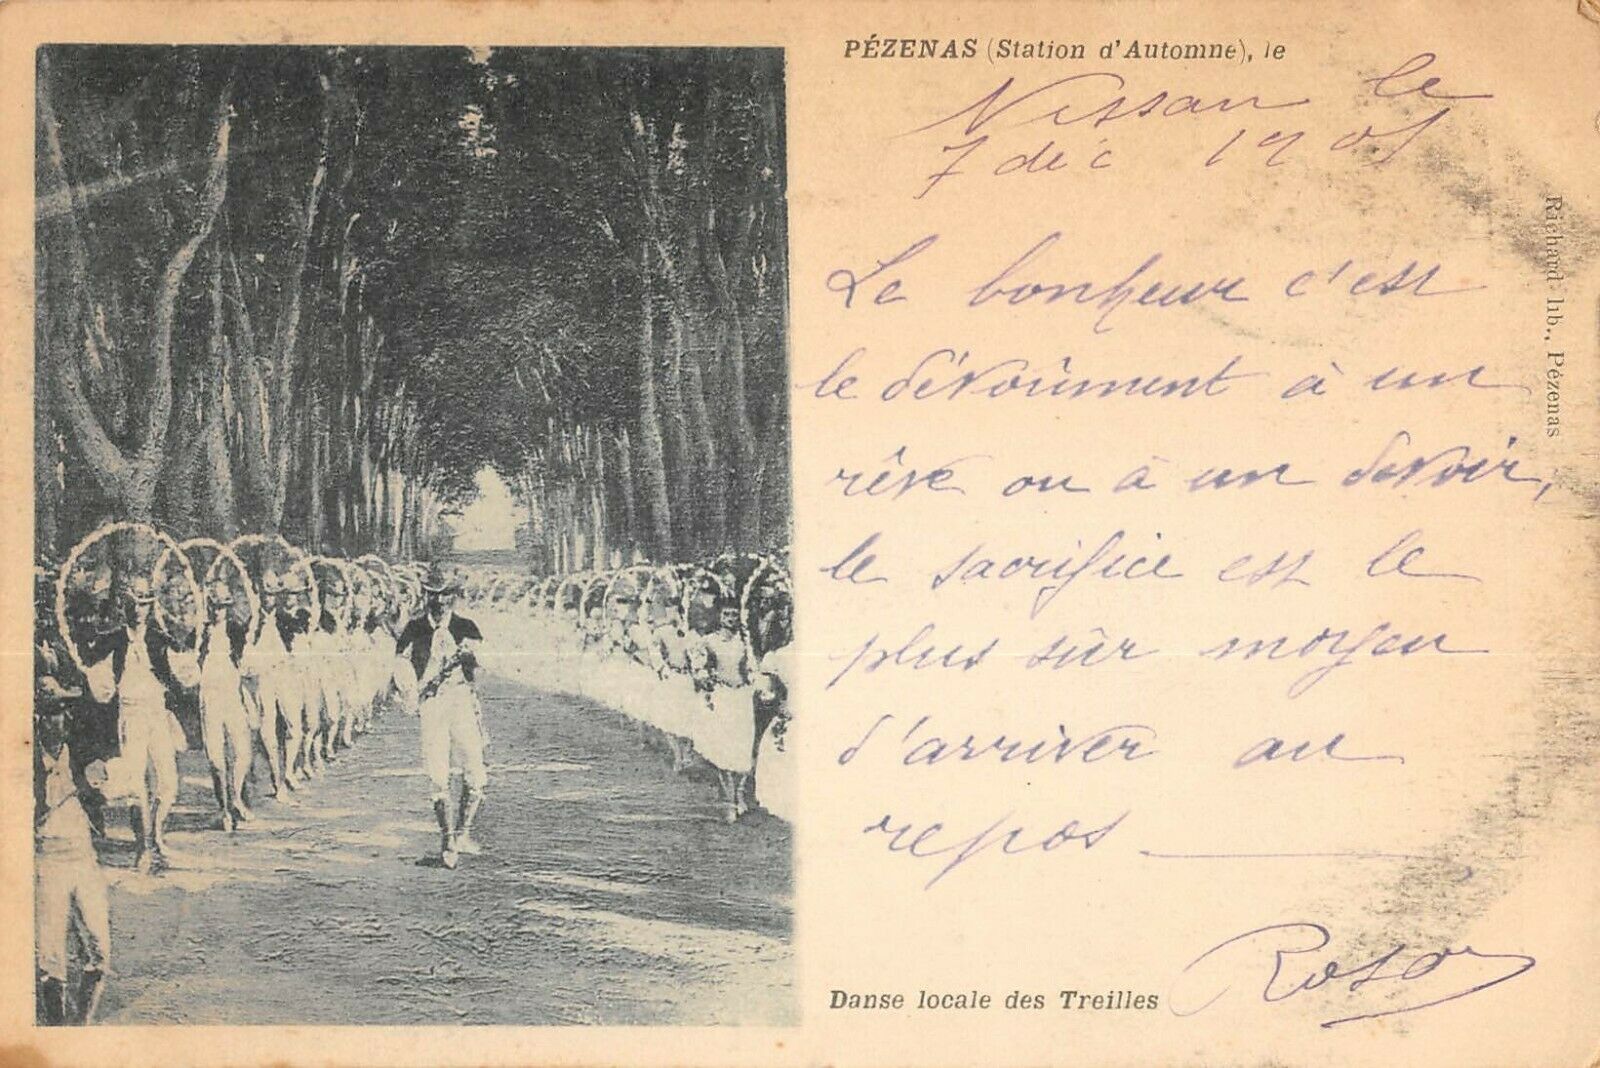 PÉZENAS (Station d'Automne), le
Nissan le
7 déc 1901
Le bonheur c'est
le dévoûment à un
rêve ou à un devoir,
le sacrifice est le
plus sûr moyen
d'arriver au
repos
Rosa
Danse locale des Treilles
Richard. lib., Pézenas